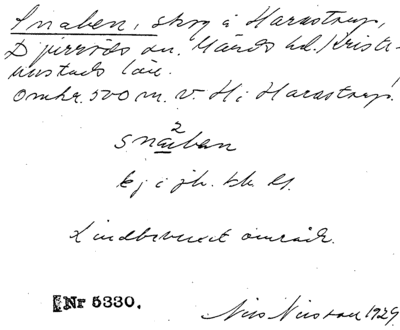 Snaben, skog å Harastorp,
Djurröds sn. Gärds hd. Kristi-
anstads län.
Omkr. 500 m. v. H i Harastorp.
snaben
2
ej i jb. bk. El.
Lindbevuxet område.
Nr 5330.
Nils Nilsson 1929